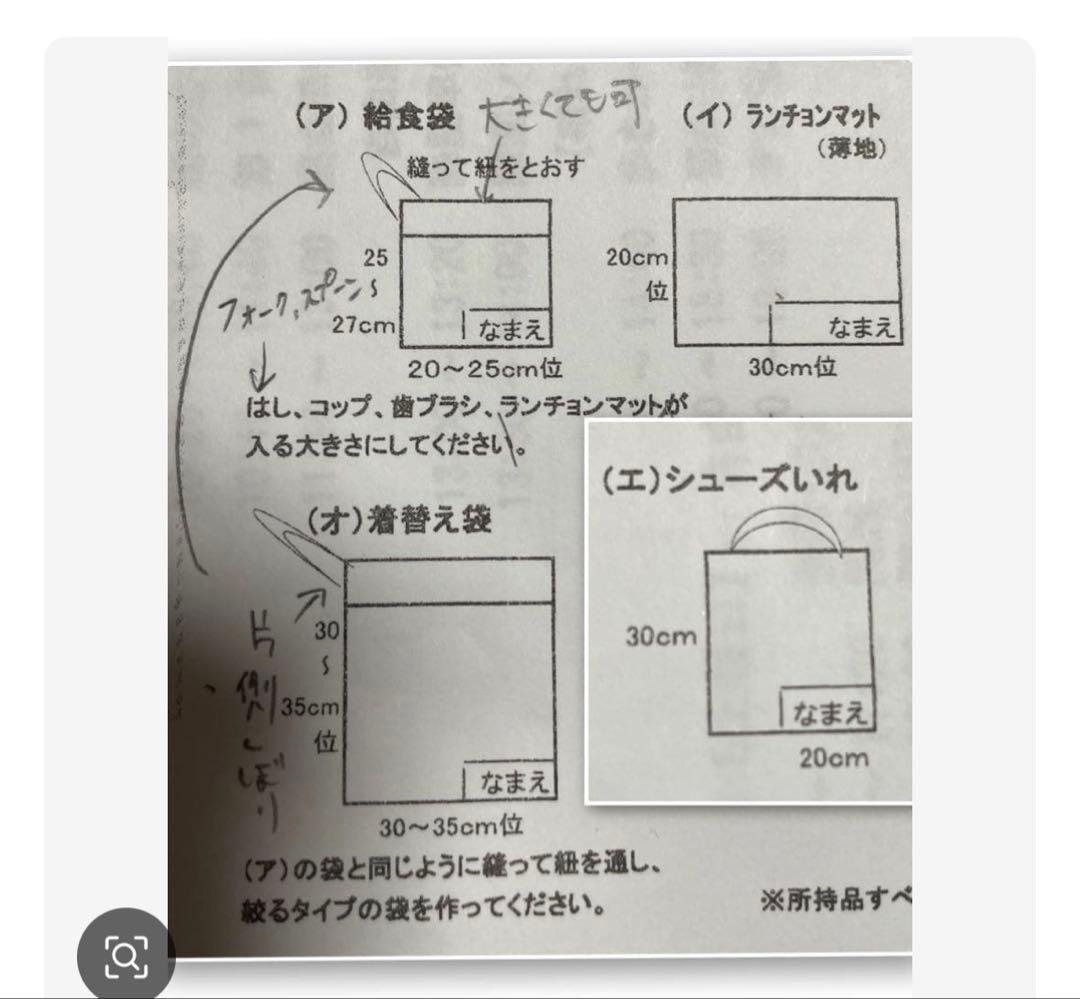 (ア) 給食袋 大きくても可
縫って紐をとおす
25
〜
27cm
なまえ
20〜25cm位
フォーク、スプーン
はし、コップ、歯ブラシ、ランチョンマットが
入る大きさにしてください。
(イ) ランチョンマット
(薄地)
20cm
位
なまえ
30cm位
(エ)シューズいれ
30cm
なまえ
20cm
(オ)着替え袋
片側しぼり
30
〜
35cm
位
なまえ
30〜35cm位
(ア)の袋と同じように縫って紐を通し、
絞るタイプの袋を作ってください。
※所持品すべ